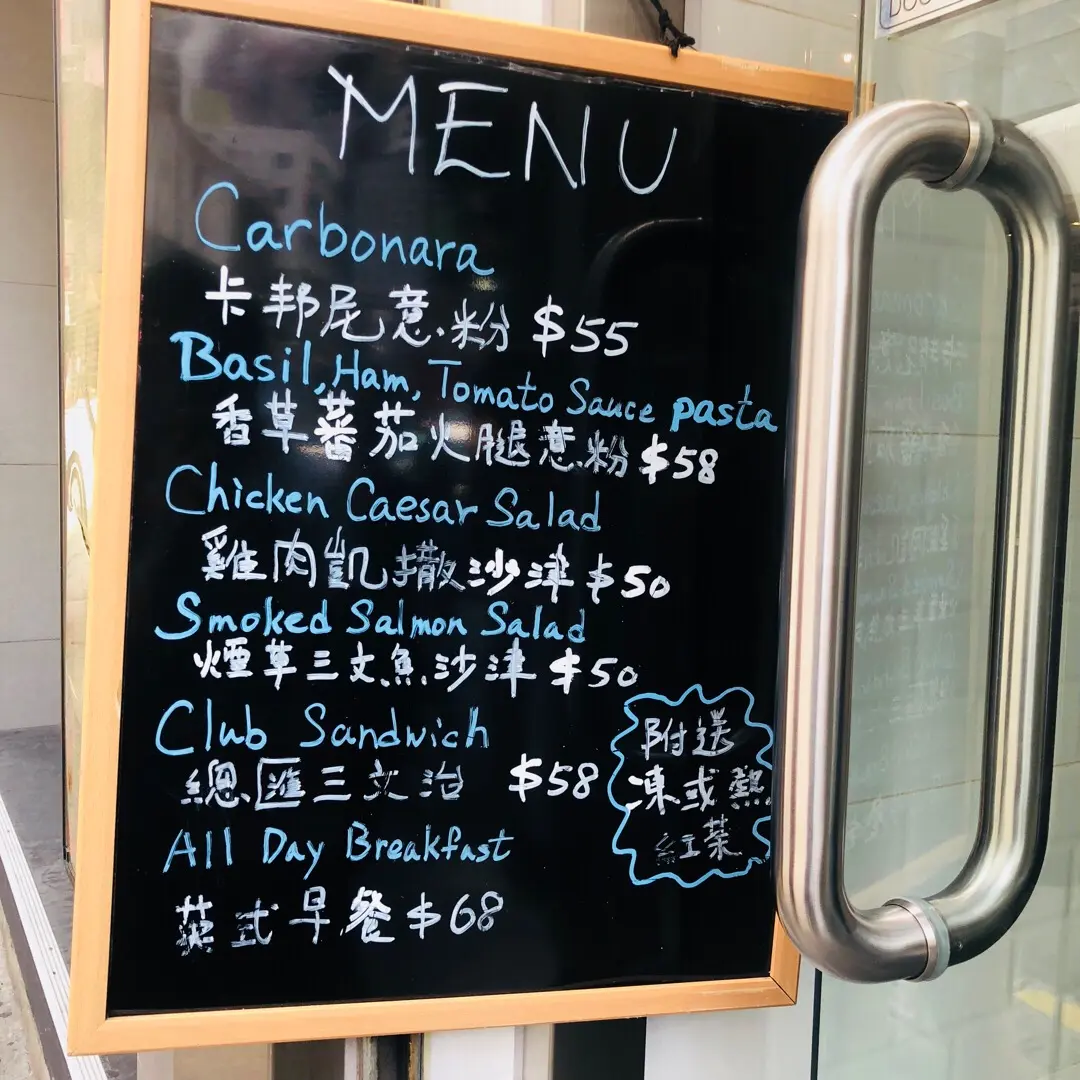 MENU
Carbonara
卡邦尼意粉 $55
Basil, Ham, Tomato Sauce pasta
香草蕃茄火腿意粉 $58
Chicken Caesar Salad
雞肉凱撒沙津 $50
Smoked Salmon Salad
煙草三文魚沙津 $50
Club Sandwich
總匯三文治 $58
All Day Breakfast
英式早餐 $68
附送
凍或熱
紅茶